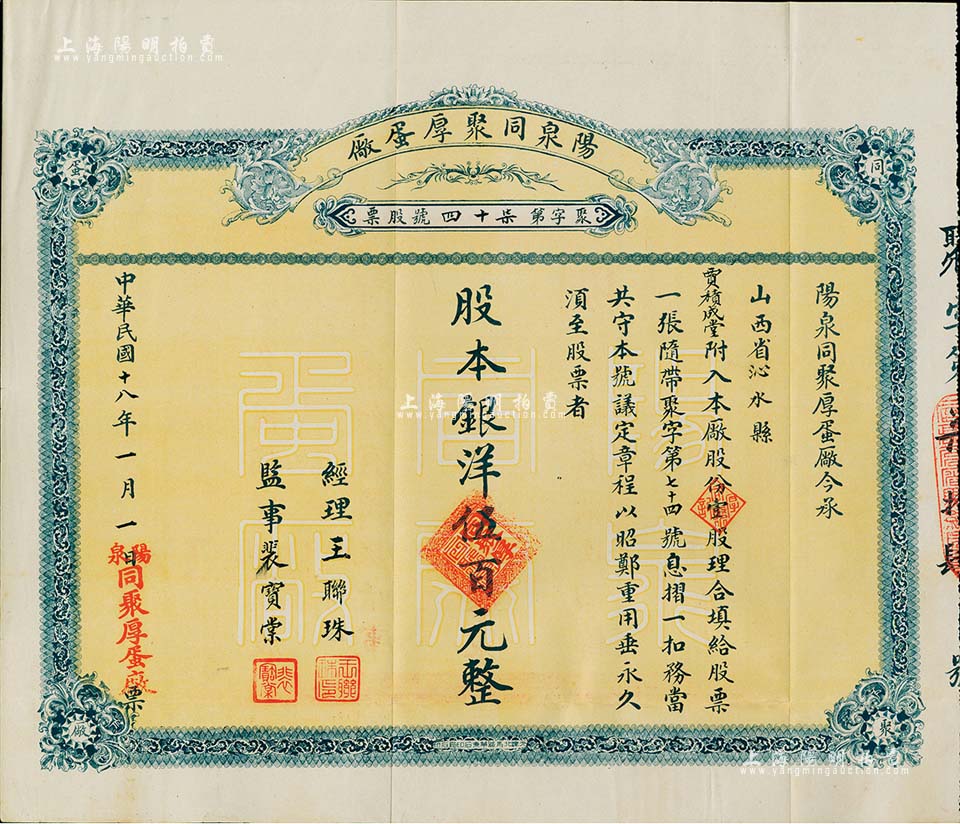 上海陽明拍賣
www.yangmingauction.com
陽泉同聚厚蛋廠
聚字第柒十四號股票
同
蛋
聚
廠
陽泉同聚厚蛋廠今承
山西省沁水縣
賈積成堂附入本廠股份壹股理合填給股票
一張隨帶聚字第七十四號息摺一扣務當
共守本號議定章程以昭鄭重用垂永久
須至股票者
股本銀洋伍百元整
經理王聯珠
監事裴寶棠
中華民國十八年一月一日
陽泉
同聚厚蛋廠
票
聚字第柒拾肆號
上海陽明拍賣
www.yangmingauction.com
上海陽明拍賣
www.yangmingauction.com